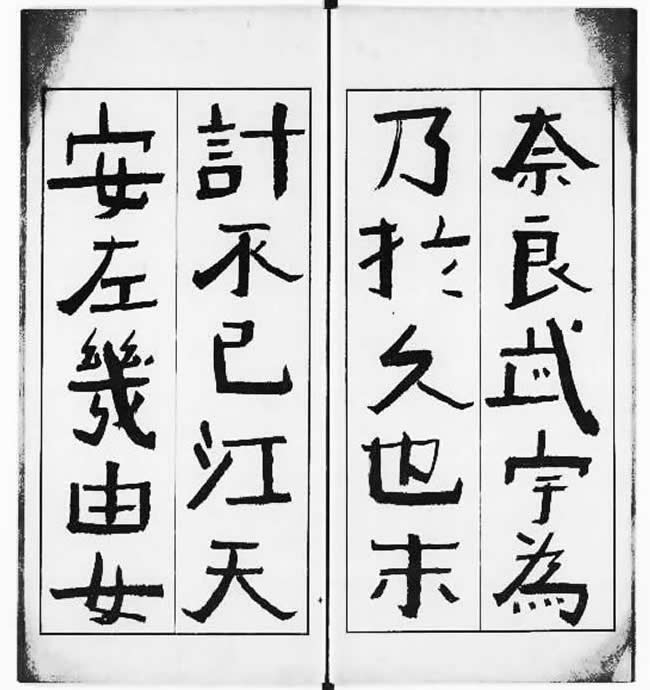 奈良武宇為
乃於久也末
計不己江天
安左幾由女